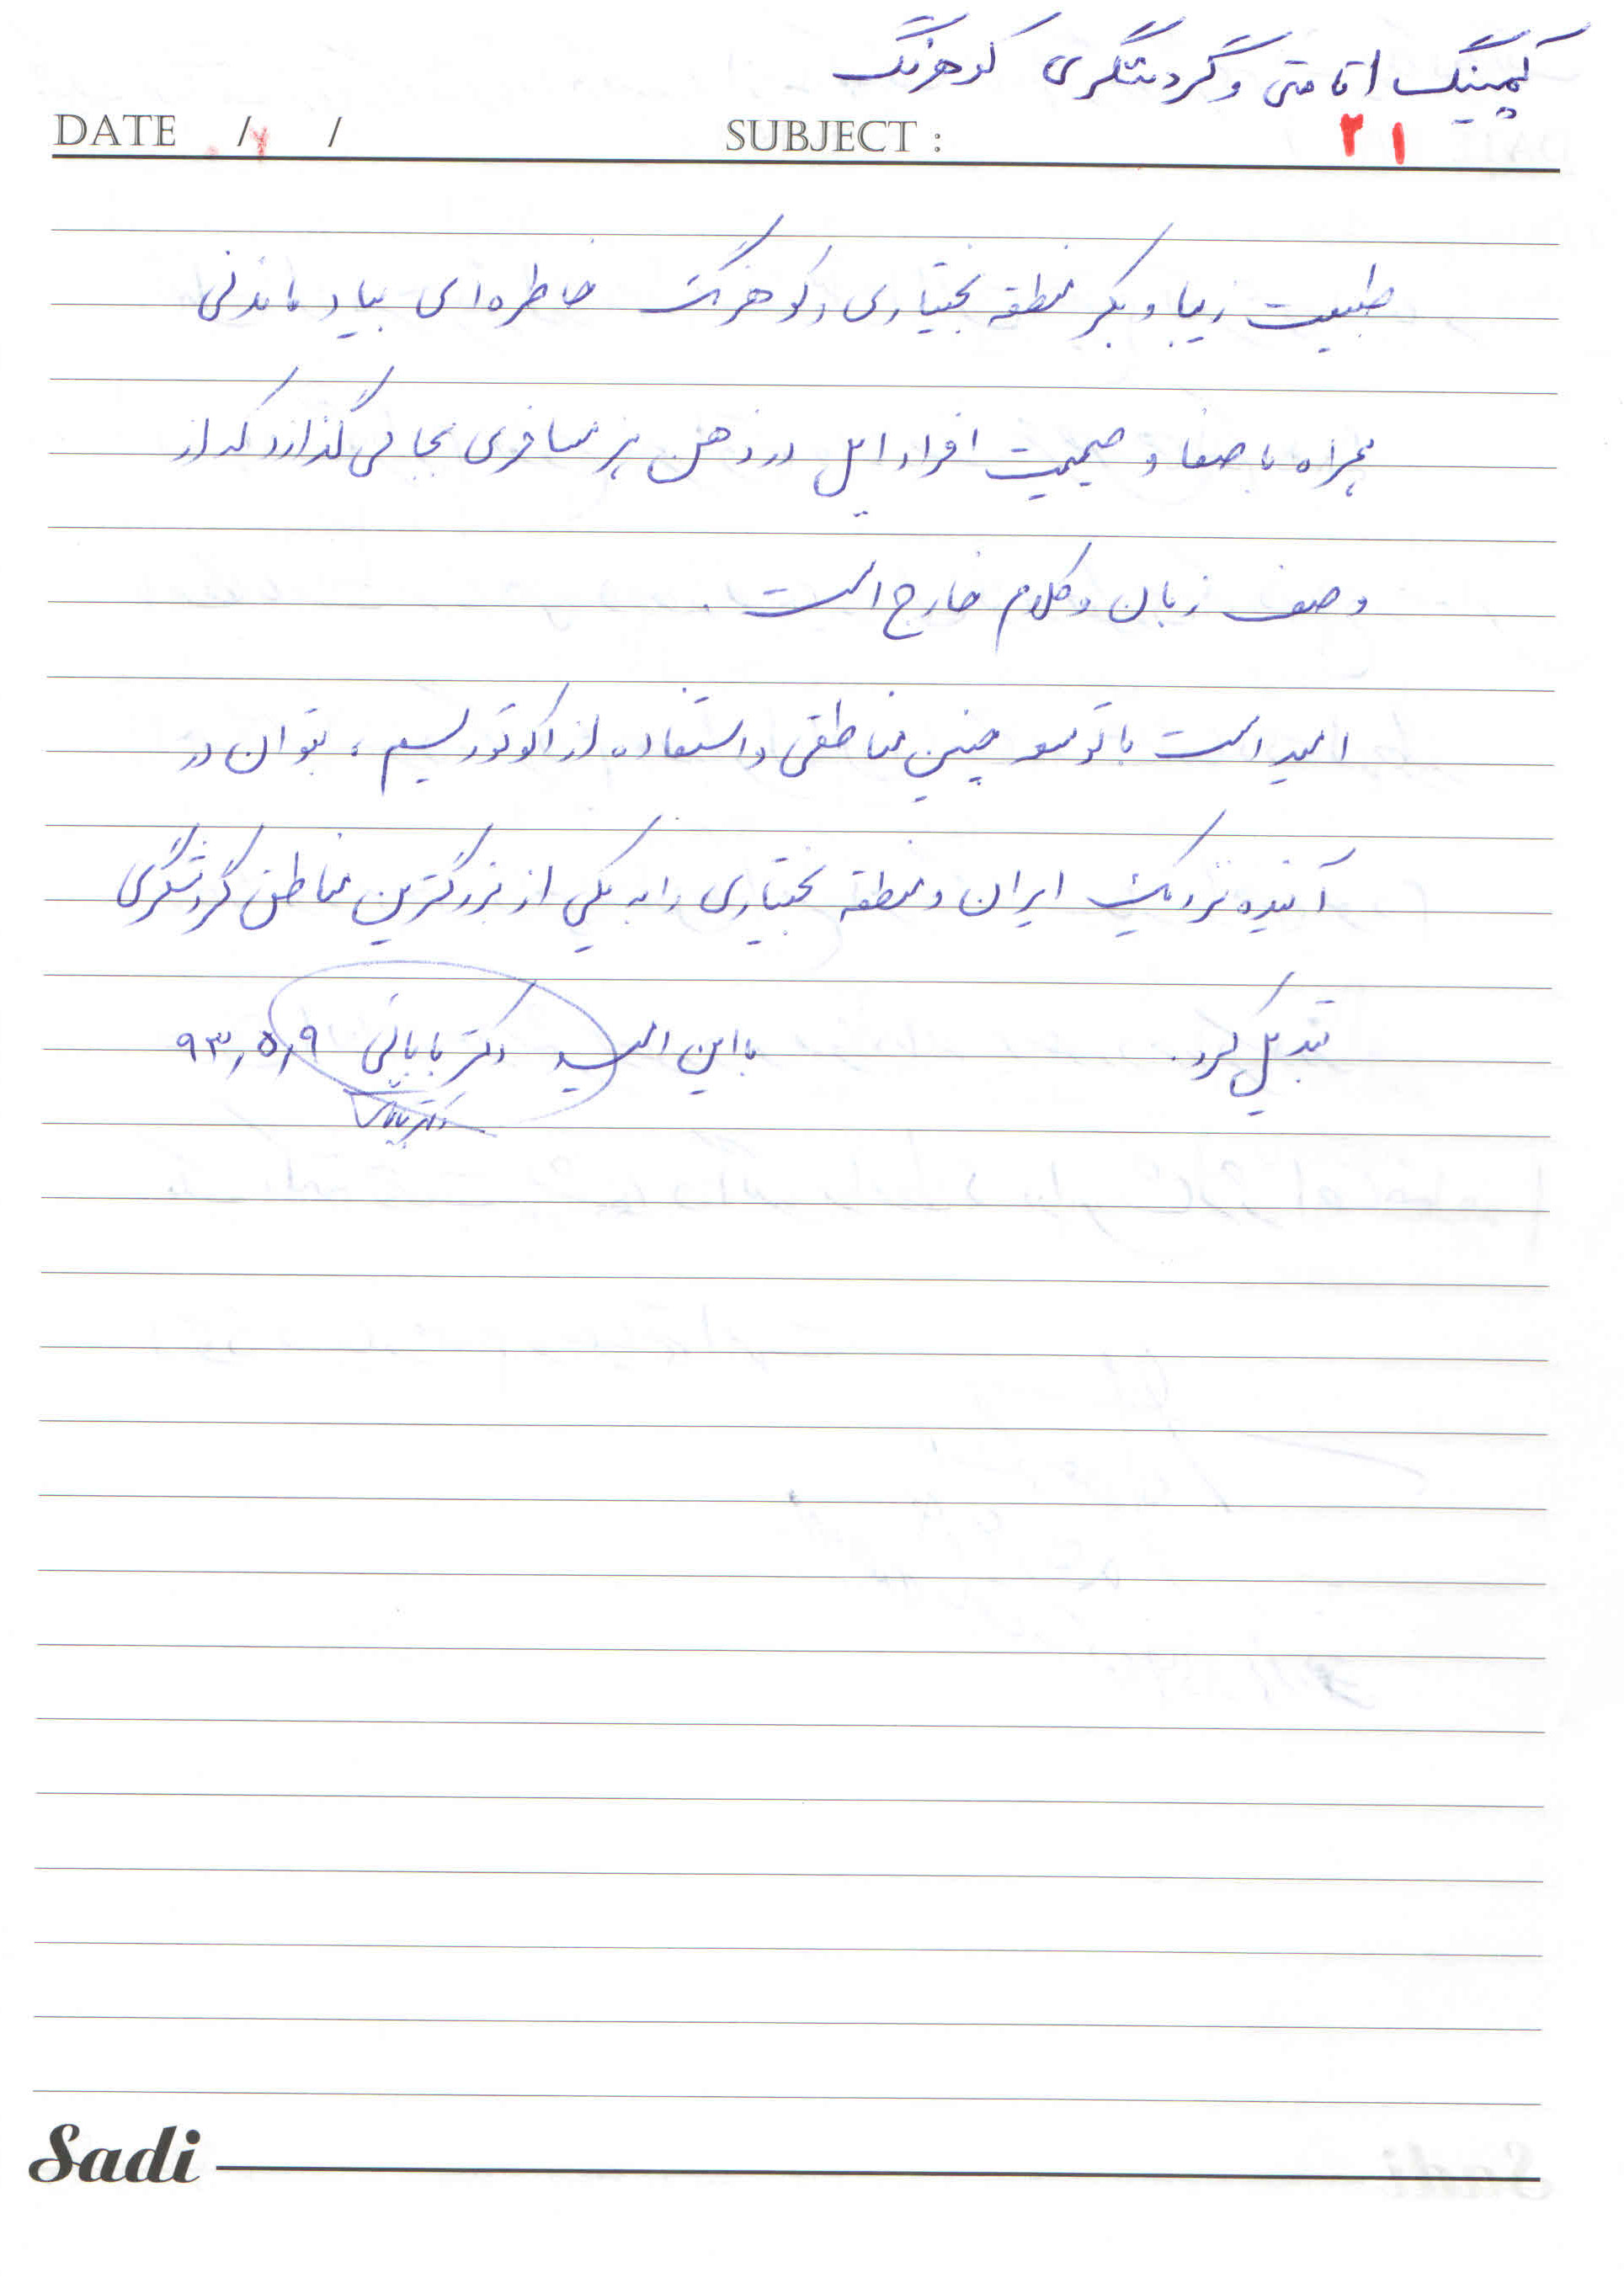 کمپینگ اقامتی و گردشگری کوهرنگ
DATE / / SUBJECT :
۲۱
طبیعت زیبا و بکر منطقه بختیاری و کوهرنگ خاطره‌ای بیاد ماندنی
همراه با صفا و صمیمیت افراد ایل در ذهن هر مسافری بجا می گذارد که از
وصف زبان و کلام خارج است .
امید است با توسعه چنین مناطقی و استفاده از اکوتوریسم ، بتوان در
آینده نزدیک ایران و منطقه بختیاری را به یکی از بزرگترین مناطق گردشگری
تبدیل کرد .
با این امید دکتر بابائی ۹۳,۵,۹
Sadi